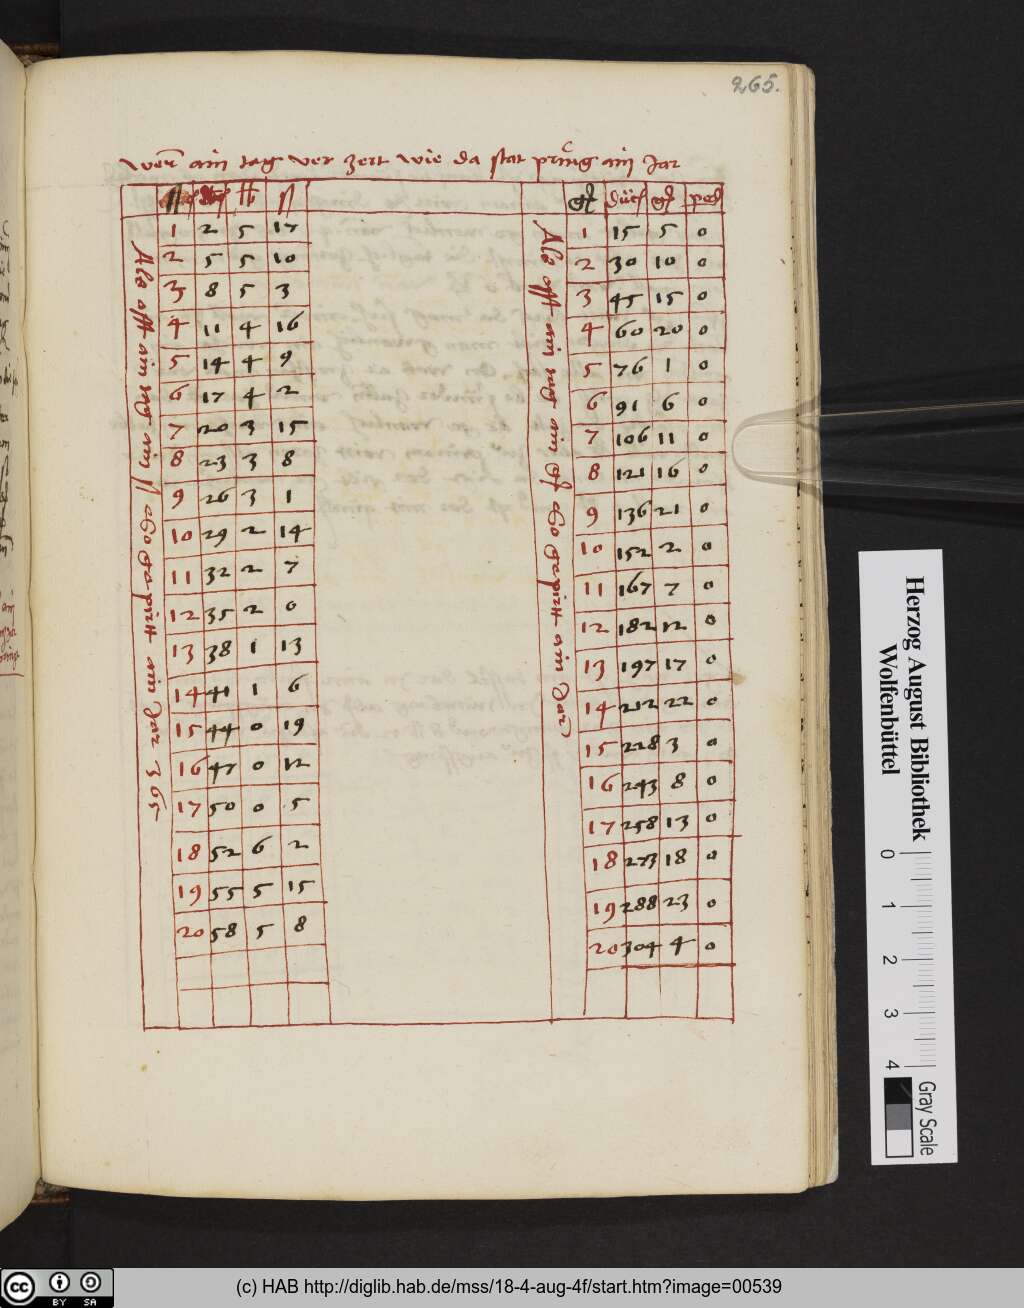 265.
wen ain tag ver zert wie da stat pring ain Jar
1 2 5 17
2 5 5 10
3 8 5 3
4 11 4 16
5 14 4 9
6 17 4 2
7 20 3 15
8 23 3 8
9 26 3 1
10 29 2 14
11 32 2 7
12 35 2 0
13 38 1 13
14 41 1 6
15 44 0 19
16 47 0 12
17 50 0 5
18 52 6 2
19 55 5 15
20 58 5 8
Als offt ain tag ain also gepirtt ain Jar 365
1 15 5 0
2 30 10 0
3 45 15 0
4 60 20 0
5 76 1 0
6 91 6 0
7 106 11 0
8 121 16 0
9 136 21 0
10 152 2 0
11 167 7 0
12 182 12 0
13 197 17 0
14 212 22 0
15 228 3 0
16 243 8 0
17 258 13 0
18 273 18 0
19 288 23 0
20 304 4 0
Als offt ain tag ain also gepirtt ain Jar
Herzog August Bibliothek
Wolfenbüttel
0 1 2 3 4
Gray Scale
cc BY SA
(c) HAB http://diglib.hab.de/mss/18-4-aug-4f/start.htm?image=00539